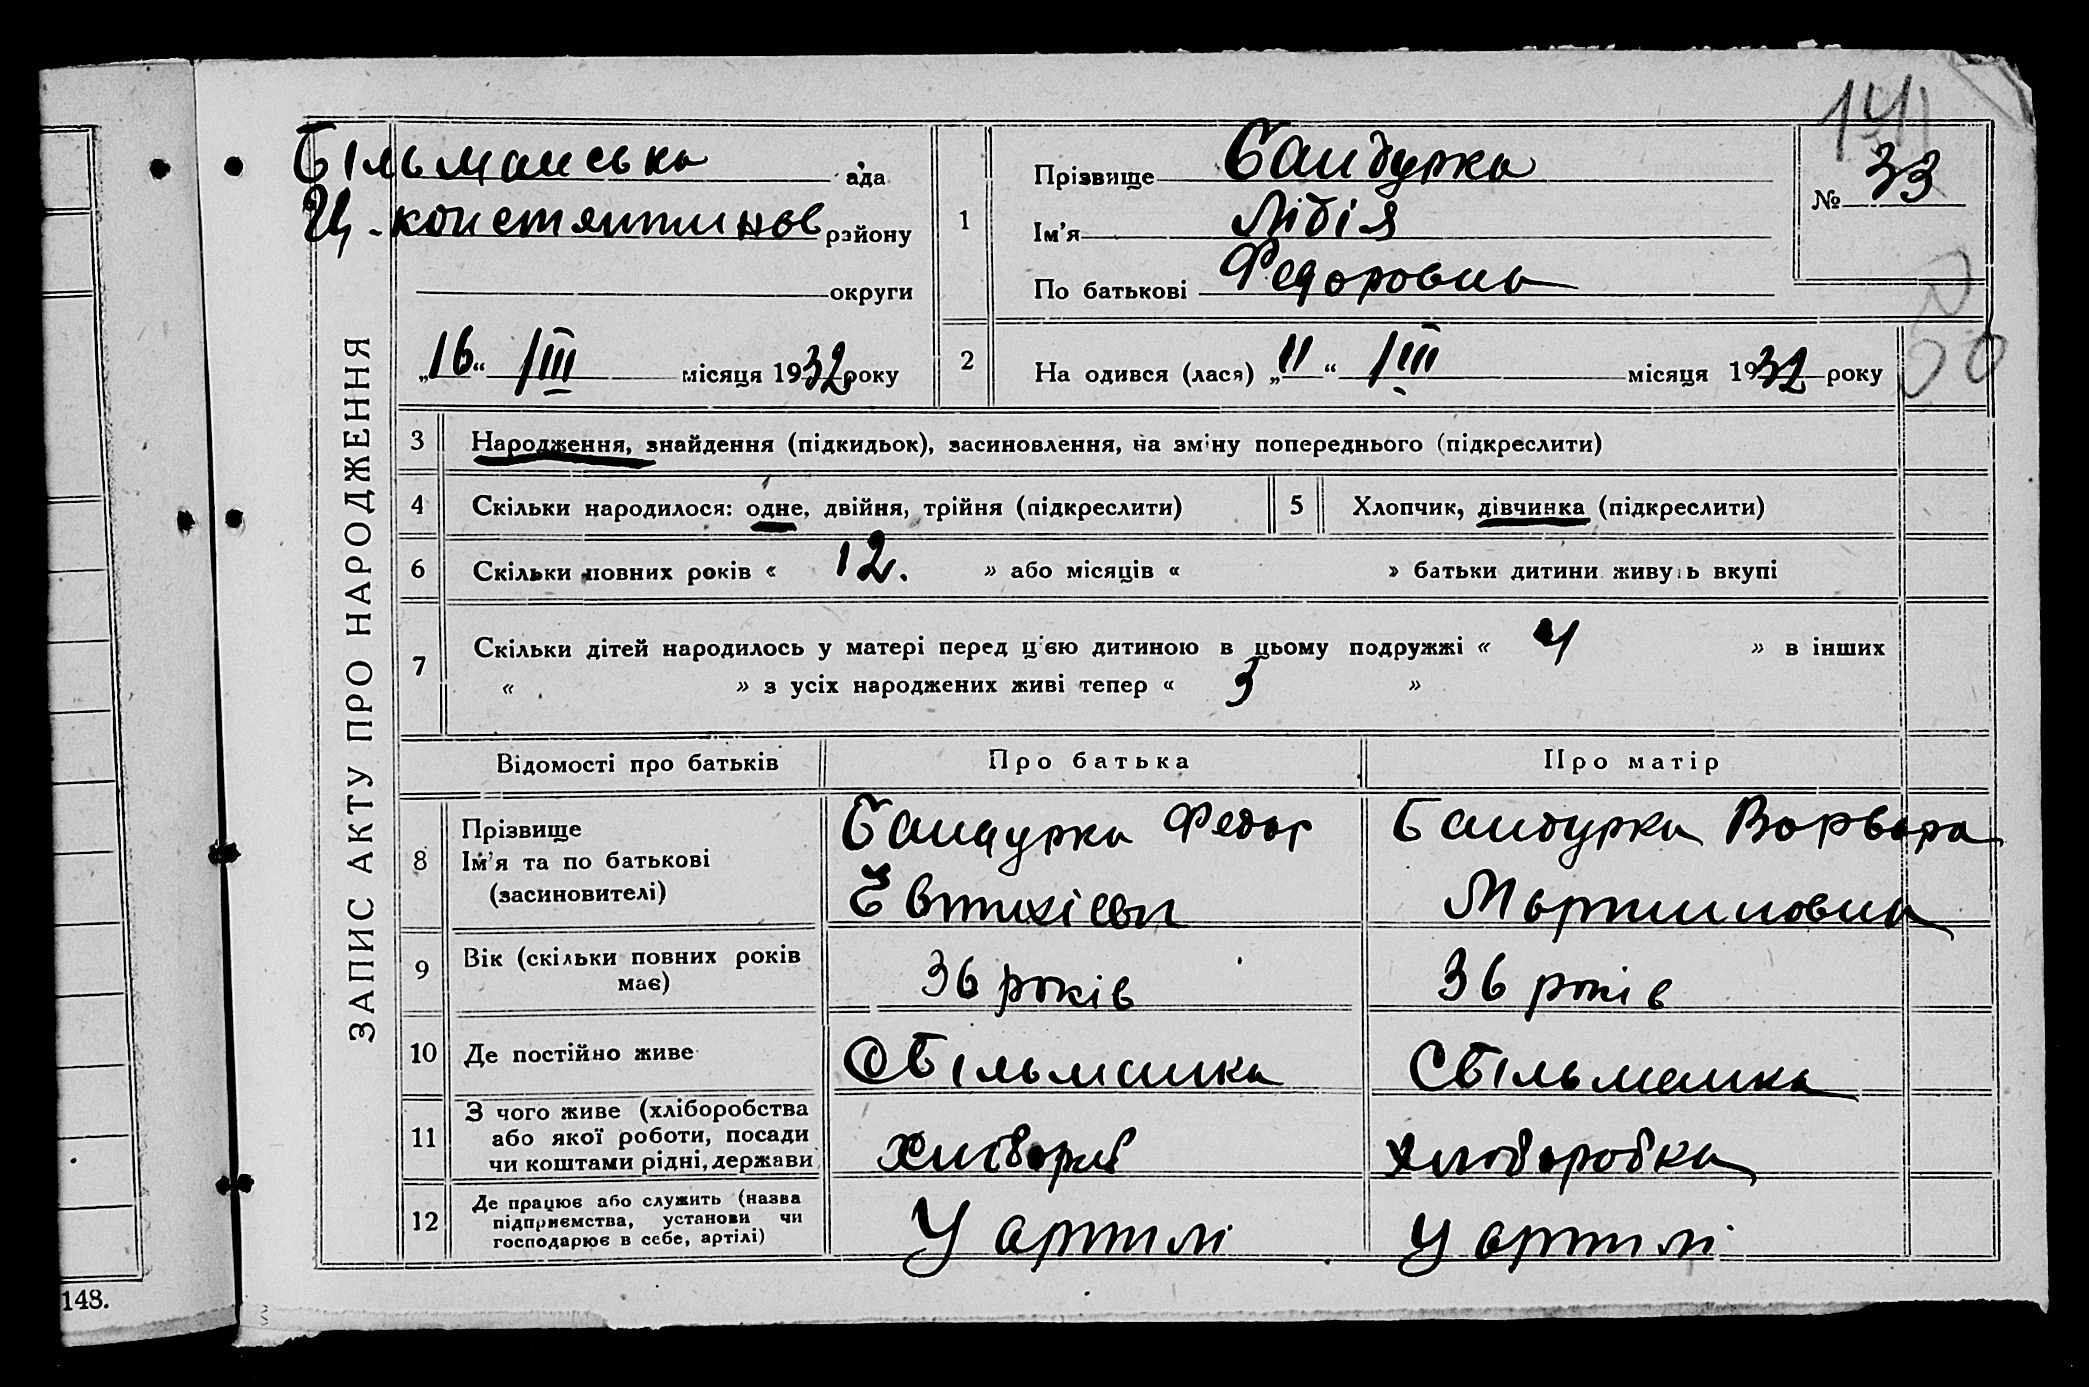 14
Більманська рада
Ц-константинов району
округи
„16“ III місяця 1932 року
ЗАПИС АКТУ ПРО НАРОДЖЕННЯ
1
Прізвище Бандурка
Ім'я Лідія
По батькові Федоровна
№ 33
2 На одився (лася) „11“ III місяця 1932 року
3 Народження, знайдення (підкидьок), засиновлення, на зміну попереднього (підкреслити)
4 Скільки народилося: одне, двійня, трійня (підкреслити)
5 Хлопчик, дівчинка (підкреслити)
6 Скільки повних років « 12. » або місяців « » батьки дитини живуть вкупі
7 Скільки дітей народилось у матері перед цією дитиною в цьому подружжі « 4 » в інших
« » з усіх народжених живі тепер « 3 »
Відомості про батьків Про батька Про матір
8 Прізвище
Ім'я та по батькові
(засиновителі)
Бандурка Федор
Евтихіевич
Бандурка Варвара
Мартиновна
9 Вік (скільки повних років
має)
36 років
36 років
10 Де постійно живе
С Більманка
С Більманка
11 З чого живе (хліборобства
або якої роботи, посади
чи коштами рідні, держави
хлібороб
хліборобка
12 Де працює або служить (назва
підприємства, установи чи
господарює в себе, артілі)
У артилі
У артилі
148.